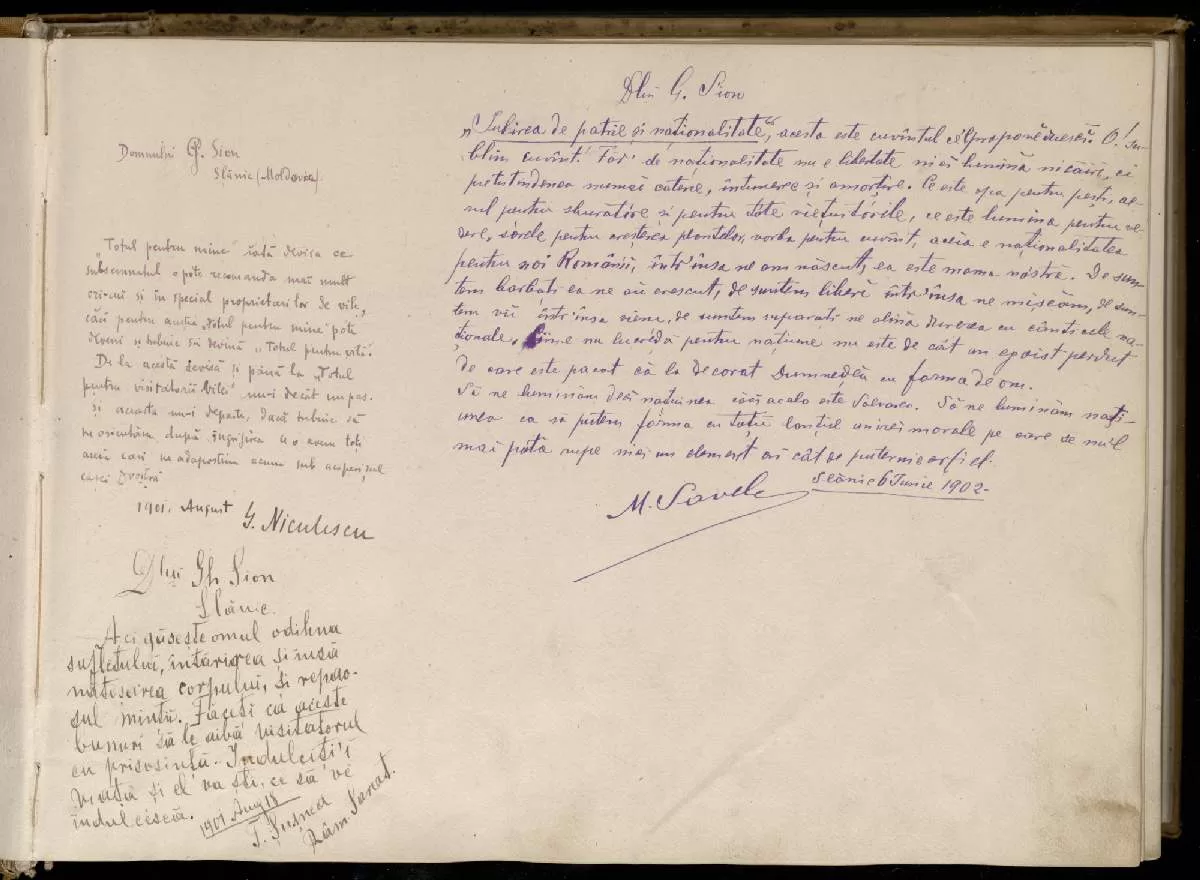 Domnului G. Sion
Slănic (Moldova)
"Totul pentru mine" iată devisa ce
subsemnatul o pote recomanda mai mult
ori-cui si în special proprietarilor de vile,
căci pentru aceștia "totul pentru mine" pote
deveni și trebuie să devină "Totul pentru
De la acestă devisă și până la "Totul
pentru visitatorii Vilei" nu-i decât un pas.
Și acesta nu-i departe, dacă trebuie să
ne orientăm după îngrijirea ce o avem toți
aceia cari ne adăpostim acum sub acoperișul
casei Dvostră
1901, August G. Niculescu
Dlui Gh. Sion
Slănic.
Aci găsește omul odihna
sufletului, întărirea și însă
nătoșirea corpului, și repao-
sul minții. Faceți ca aceste
bunuri să le aibă visitatorul
cu prisosință. Indulciți'i
viața și el va ști, ce să ve
îndulcescă.
1901 Aug 18
Râm. Sărat.
Dlui G. Sion
"Iubirea de patrie și naționalitate", acesta este cuvîntul ce'l propovăduesci. O! Su-
blim cuvînt! Făr' de naționalitate nu e libertate nici lumină nicăiri, ci
pretutindenea numai cătene, întunerec și amorțire. Ce este apa pentru pești, ae-
rul pentru sburătore și pentru tote viețuitorile, ce este lumina pentru ve-
dere, sorele pentru creșterea plantelor, vorba pentru cuvînt, aceia e naționalitatea
pentru noi Românii, într'însa ne am născut, ea este mama nostră. De sun-
tem barbați ea ne au crescut, de suntem liberi într'însa ne mișcăm, de sun-
tem vii într'însa viem, de suntem superați ne alină durerea cu cânticele na-
ționale. Cine nu lucreză pentru națiune nu este de cât un egoist perdut
de care este pacat că l'a decorat Dumnedeu cu forma de om.
Să ne luminăm deci națiunea căci acolo este Salvarea. Să ne luminăm nați-
unea ca să putem forma cu toții lanțul unirei morale pe care de nu'l
mai póta rupe nici un element ori cât de puternic ar fi el.
Slănic 6 Iunie 1902-
M. Savel